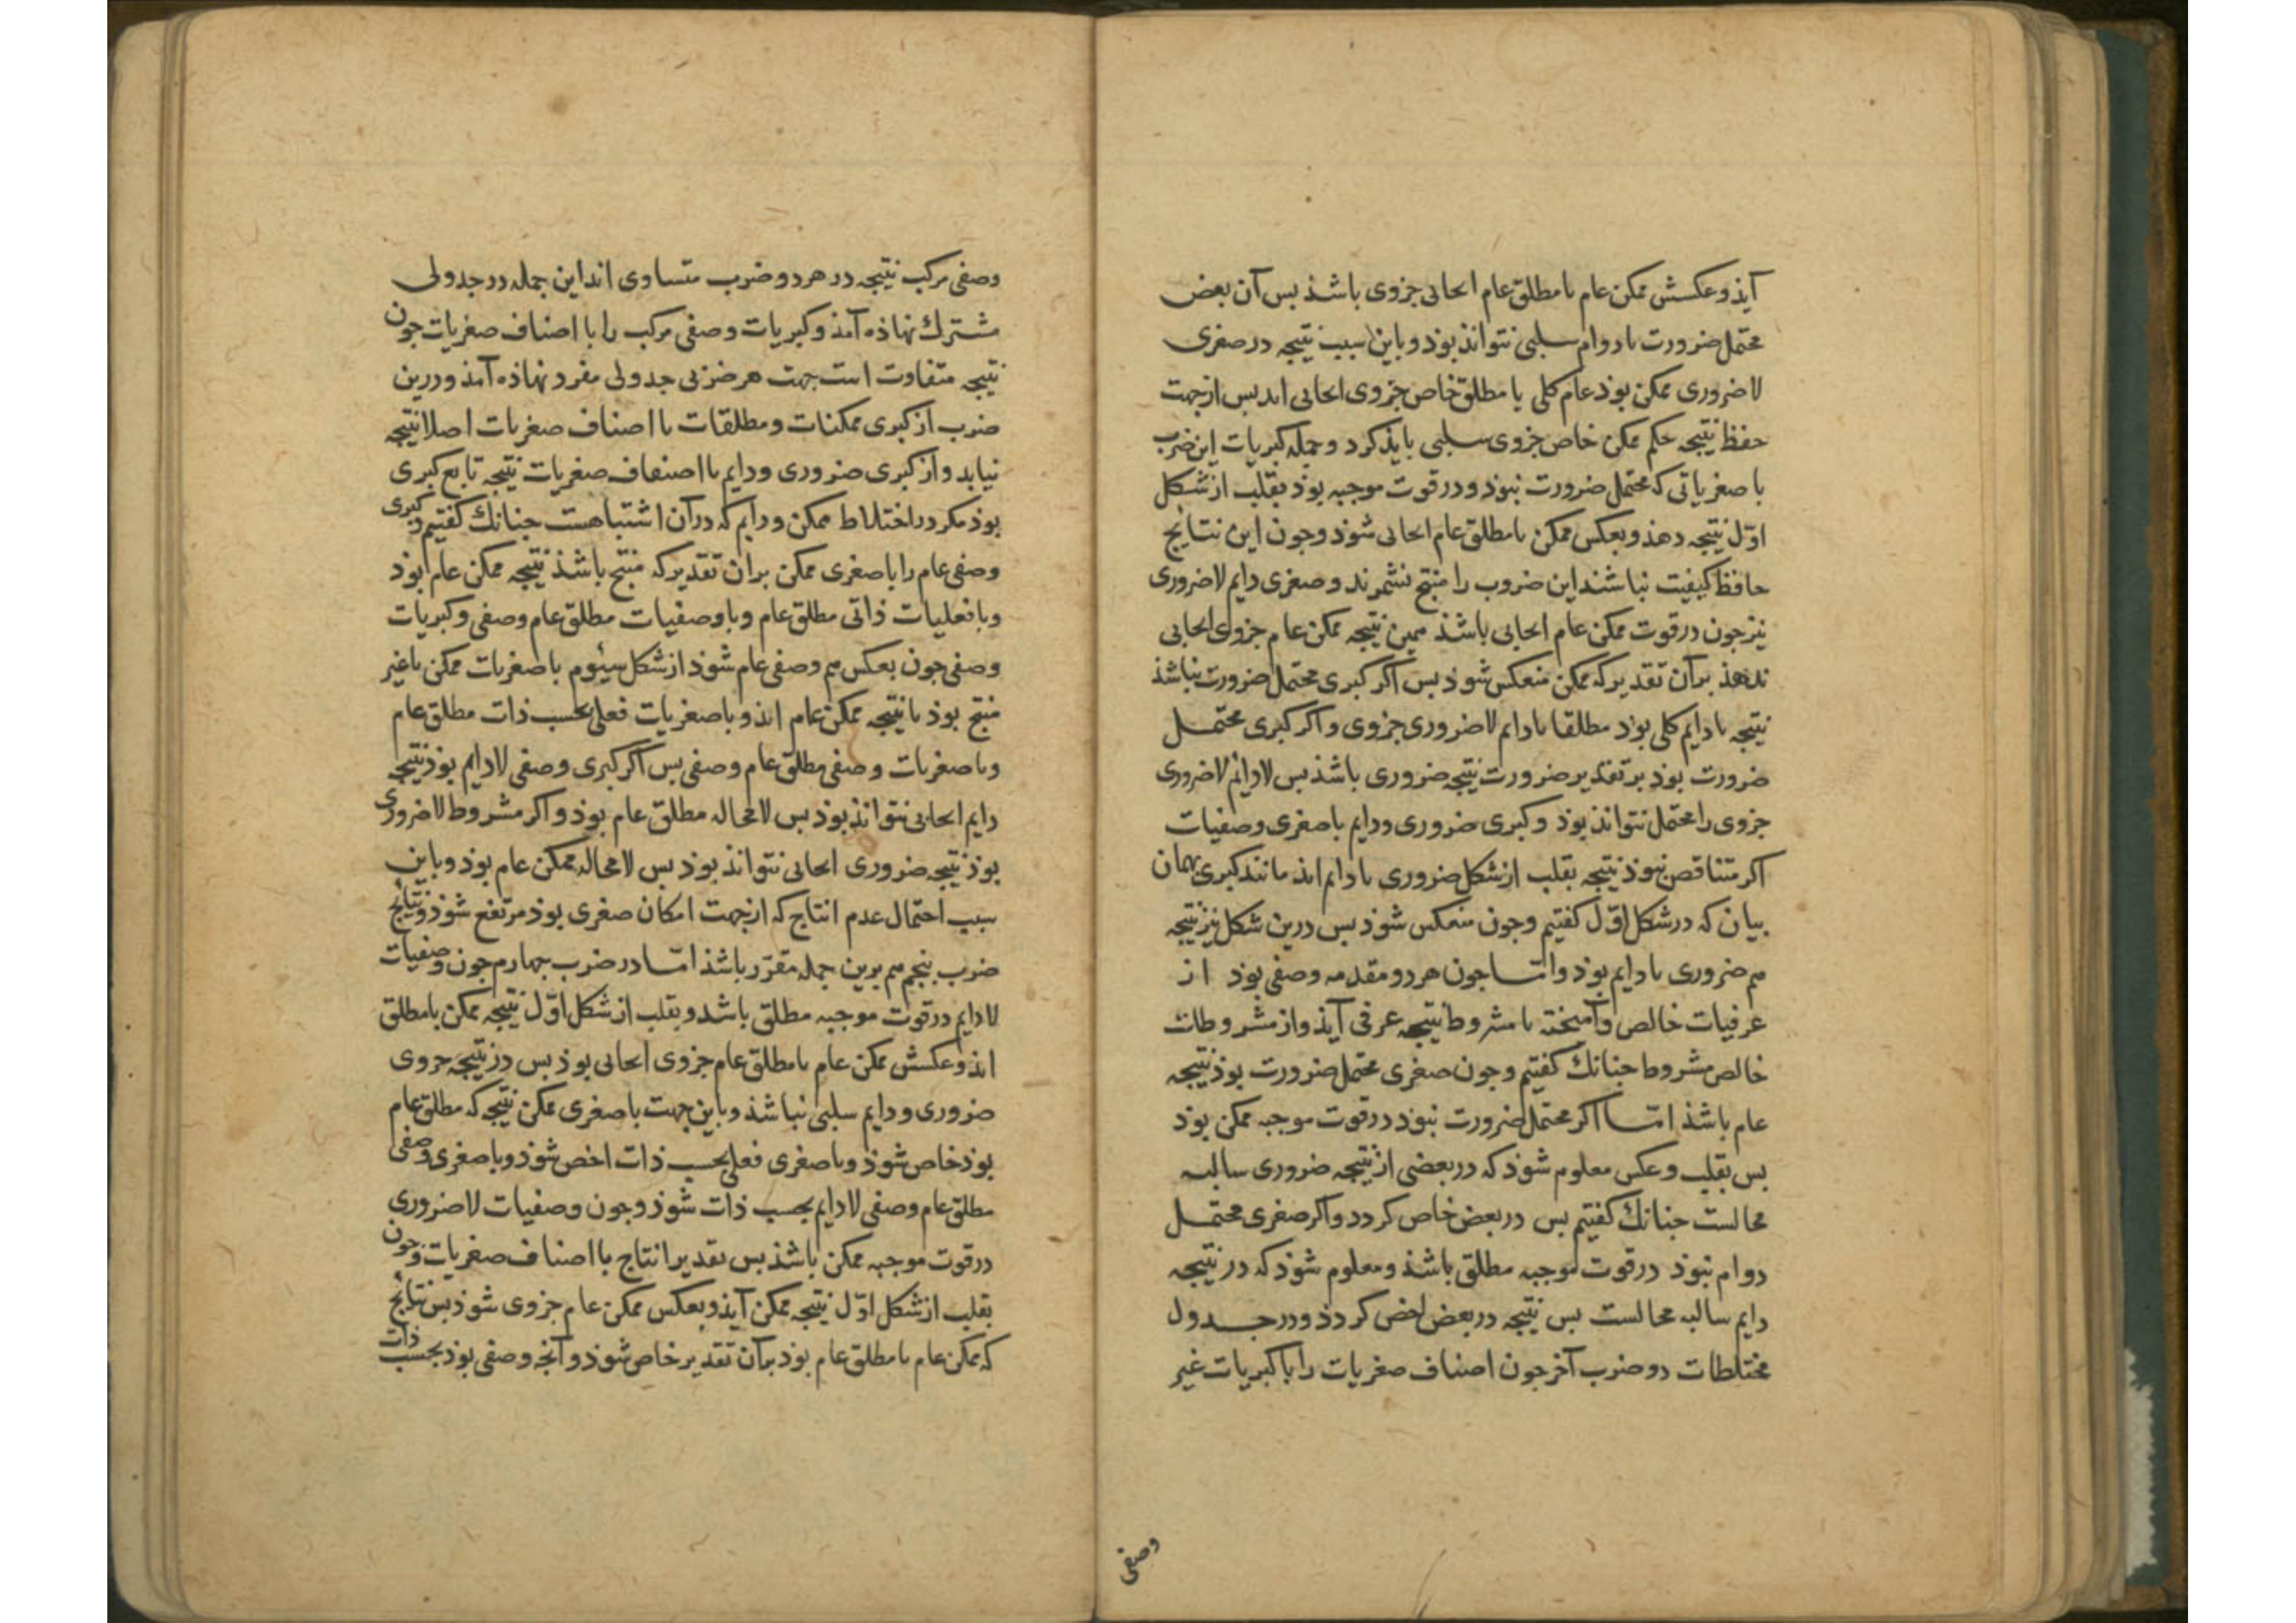 آیذ و عکسش ممکن عام یا مطلق عام ایجابی جزوی باشذ بس آن بعض
محتمل ضرورت یا دوام سلبی نتواند بوذ و باین سبب نتیجه در صغری
لاضروری ممکن بوذ عام کلی یا مطلق خاص جزوی ایجابی اید بس از جهت
حفظ نتیجه حکم ممکن خاص جزوی سلبی بایذ کرد و جمله کبریات این ضرب
با صغریاتی که محتمل ضرورت نبوذ و در قوت موجبه بوذ بقلب از شکل
اوّل نتیجه دهذ و بعکس ممکن یا مطلق عام ایجابی شوذ و جون این نتایج
حافظ کیفیت نباشند این ضروب را منتج نشمرند و صغری دایم لاضروری
نیز جون در قوت ممکن عام ایجابی باشذ همین نتیجه ممکن عام جزوی ایجابی
بدهذ بر آن تقدیر که ممکن منعکس شوذ بس اکر کبری محتمل ضرورت نباشذ
نتیجه یا دایم کلی بوذ مطلقا یا دایم لاضروری جزوی و اکر کبری محتمل
ضرورت بوذ بر تقدیر ضرورت نتیجه ضروری باشذ بس لادایم لاضروری
جزوی را محتمل نتواند بوذ و کبری ضروری و دایم با صغری وصفیات
اکر متناقض نبوذ نتیجه بقلب از شکل ضروری یا دایم اید مانند کبری بهمان
بیان که در شکل اوّل کفتیم و جون منعکس شوذ بس درین شکل نیز نتیجه
هم ضروری یا دایم بوذ و امّا جون هر دو مقدمه وصفی بوذ از
عرفیات خالص و آمیخته با مشروط نتیجه عرفی آیذ و از مشروطات
خالص مشروط جنانك کفتیم و جون صغری محتمل ضرورت بوذ نتیجه
عام باشذ امّا اکر محتمل ضرورت نبوذ در قوت موجبه ممکن بوذ
بس بقلب و عکس معلوم شوذ که در بعضی از نتیجه ضروری سالبه
محالست جنانك کفتیم بس در بعض خاص کردد و اکر صغری محتمل
دوام نبوذ در قوت موجبه مطلق باشذ و معلوم شوذ که در نتیجه
دایم سالبه محالست بس نتیجه در بعض اخص کردذ و در جدول
مختلطات دو ضرب آخر جون اصناف صغریات را با کبریات غیر
وصفی
وصفی مرکب نتیجه در هر دو ضرب متساوی اند این جمله در جدولی
مشترك نهاذه آمذ و کبریات وصفی مرکب را با اصناف صغریات جون
نتیجه متفاوت است جهت هر ضربی جدولی مفرد نهاذه آمذ و درین
ضرب از کبری ممکنات و مطلقات با اصناف صغریات اصلا نتیجه
نیاید و از کبری ضروری و دایم با اصناف صغریات نتیجه تابع کبری
بوذ مکر در اختلاط ممکن و دایم که در آن اشتباهست جنانك کفتیم و کبری
وصفی عام را با صغری ممکن بران تقدیر که منتج باشذ نتیجه ممکن عام بوذ
و با فعلیات ذاتی مطلق عام و با وصفیات مطلق عام وصفی و کبریات
وصفی جون بعکس هم وصفی عام شوذ از شکل سئوم با صغریات ممکن یا غیر
منتج بوذ یا نتیجه ممکن عام اید و با صغریات فعلی بحسب ذات مطلق عام
و با صغریات وصفی مطلق عام وصفی بس اکر کبری وصفی لادایم بوذ نتیجه
دایم ایجابی نتواند بوذ بس لامحاله مطلق عام بوذ و اکر مشروط لاضروری
بوذ نتیجه ضروری ایجابی نتواند بوذ بس لامحاله ممکن عام بوذ و باین
سبب احتمال عدم انتاج که از جهت امکان صغری بوذ مرتفع شوذ و نتایج
ضرب بنجم هم برین جمله مقرّر باشذ امّا در ضرب جهارم جون وصفیات
لادایم در قوت موجبه مطلق باشد و بقلب از شکل اوّل نتیجه ممکن یا مطلق
اید و عکسش ممکن عام یا مطلق عام جزوی ایجابی بوذ بس در نتیجه جزوی
ضروری و دایم سلبی نباشذ و باین جهت با صغری ممکن نتیجه که مطلق عام
بوذ خاص شوذ و با صغری فعلی بحسب ذات اخص شوذ و با صغری وصفی
مطلق عام وصفی لادایم بحسب ذات شوذ و جون وصفیات لاضروری
در قوت موجبه ممکن باشذ بس بقدیر انتاج با اصناف صغریات و جون
بقلب از شکل اوّل نتیجه ممکن آیذ و بعکس ممکن عام جزوی شوذ بس نتایج
که ممکن عام یا مطلق عام بوذ بر آن تقدیر خاص شوذ و آنجه وصفی بوذ بحسب ذات